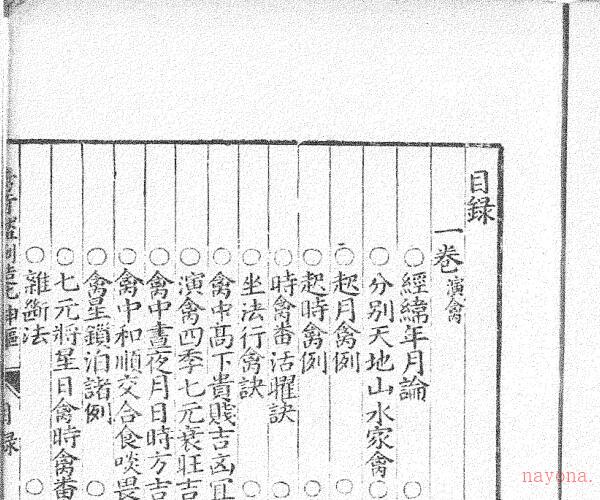 目録
一卷 演禽
○經緯年月論
○分别天地山水家禽○
○起月禽例
○起時禽例
○時禽番活曜訣
○坐法行禽訣
○禽中髙下貴賤吉凶冝
○演禽四季七元衰旺吉
○禽中晝夜月日時方吉
○禽中和順交合食啖畏
○禽星鎖泊諸例
○七元將星日禽時禽番
○雜斷法
目録
nayona.